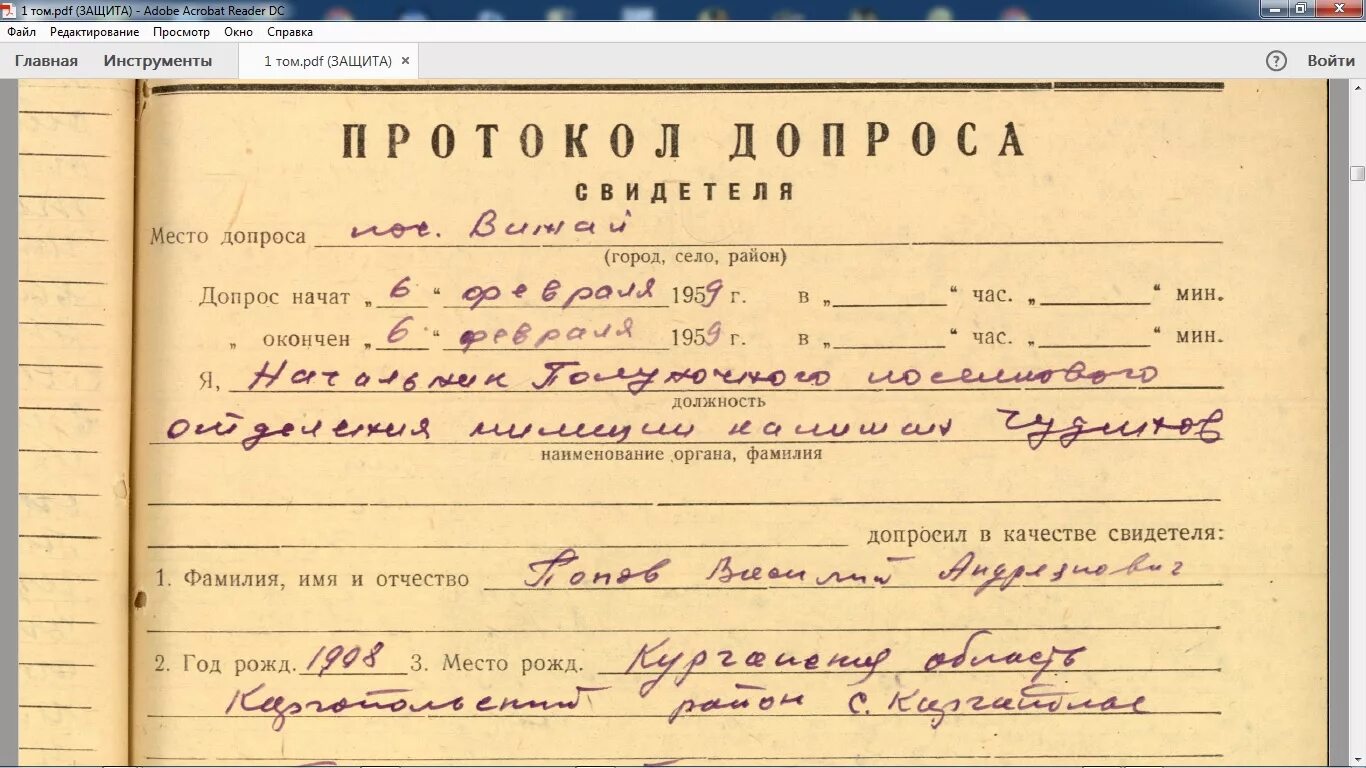 1 том.pdf (ЗАЩИТА) - Adobe Acrobat Reader DC
Файл Редактирование Просмотр Окно Справка
Главная Инструменты 1 том.pdf (ЗАЩИТА) × ? Войти
ПРОТОКОЛ ДОПРОСА
СВИДЕТЕЛЯ
Место допроса пос. Вижай
(город, село, район)
Допрос начат „6“ февраля 1959 г. в „ “ час. „ “ мин.
„ окончен „6“ февраля 1959 г. в „ “ час. „ “ мин.
Я, Начальник Полуночного поселкового
должность
отделения милиции капитан Чудинов
наименование органа, фамилия
допросил в качестве свидетеля:
1. Фамилия, имя и отчество Попов Василий Андреянович
2. Год рожд. 1908 3. Место рожд. Курганская область
Каргопольский район с.